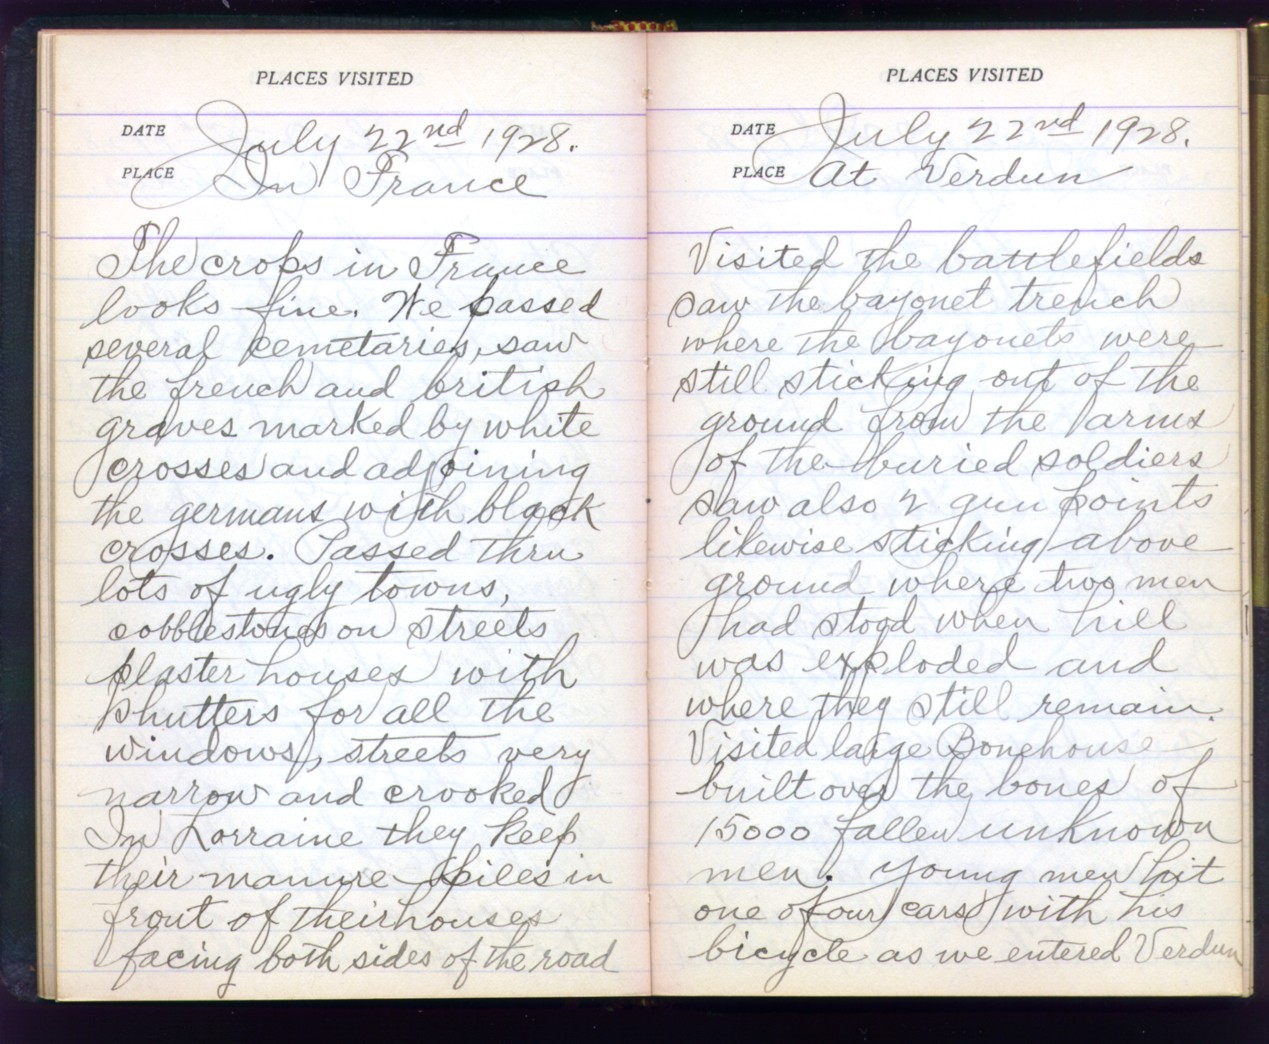 PLACES VISITED
DATE July 22nd 1928.
PLACE In France
The crops in France
looks fine. We passed
several cemetaries, saw
the french and british
graves marked by white
crosses and adjoining
the germans with black
crosses. Passed thru
lots of ugly towns,
cobblestones on streets
plaster houses with
shutters for all the
windows, streets very
narrow and crooked
In Lorraine they keep
their manure piles in
front of their houses
facing both sides of the road
PLACES VISITED
DATE July 22nd 1928.
PLACE At Verdun
Visited the battlefields
saw the bayonet trench
where the bayonets were
still sticking out of the
ground from the arms
of the buried soldiers
saw also 2 gun points
likewise sticking above
ground where two men
had stood when hill
was exploded and
where they still remain.
Visited large Bonehouse
built over the bones of
15000 fallen unknown
men. Young men hit
one of our cars with his
bicycle as we entered Verdun